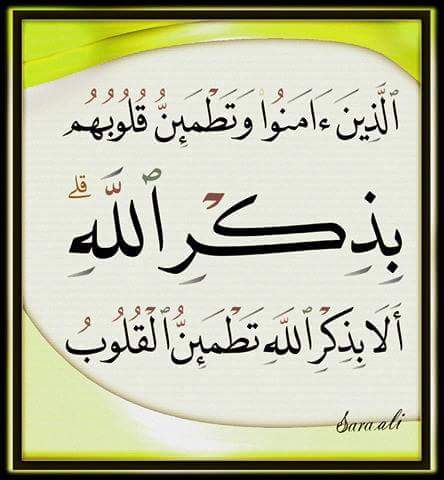 ٱلَّذِينَ ءَامَنُوا۟ وَتَطْمَئِنُّ قُلُوبُهُم
بِذِكْرِ ٱللَّهِ ۗ
أَلَا بِذِكْرِ ٱللَّهِ تَطْمَئِنُّ ٱلْقُلُوبُ
Sara.ali